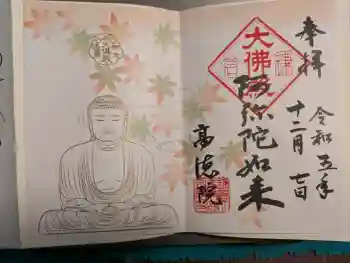 奉拝
令和五年
十一月七日
大佛殿
阿弥陀如来
高徳院